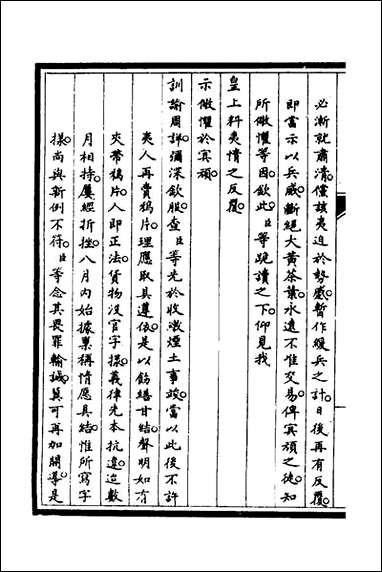 必漸就肅清。儻該夷迫於勢慼。暫作緩兵之計。日後再有反覆。
即當示以兵威。斷絕大黃茶葉。永遠不准交易。俾冥頑之徒。知
所儆懼等因。欽此。臣等跪讀之下。仰見我
皇上料夷情之反覆。
示儆懼於冥頑。
訓諭周詳。彌深欽服。查臣等先於收繳煙土事竣。當以此後不許
夷人再賣鴉片。理應取具遵依。是以飭繕甘結。聲明如有
夾帶鴉片。人即正法。貨物沒官字樣。義律先本抗違。迨數
月相持。屢經折挫。八月內始據稟稱情愿具結。惟所寫字
樣。尚與新例不符。臣等念其畏罪輸誠。冀可再加開導。是